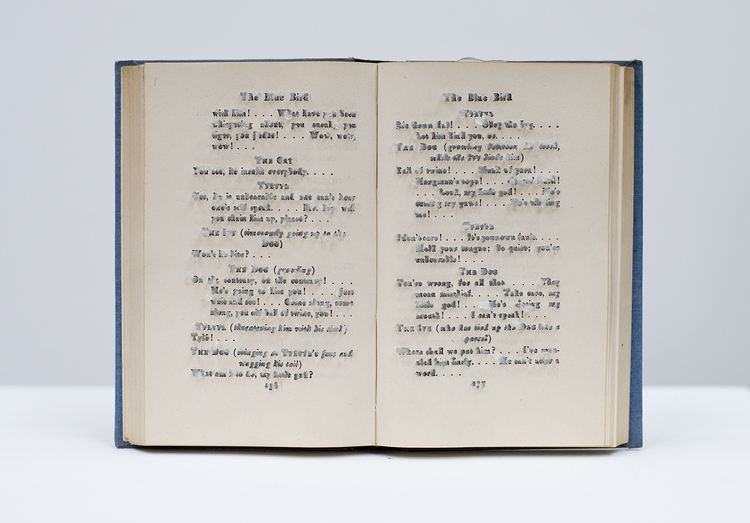 The Blue Bird
with him! . . . . What have you been
whispering about, you sneak, you
tiger, you Judas! . . . . Wow, wow,
wow! . . . .
THE CAT
You see, he insults everybody. . . . .
TYLTYL
Yes, he is unbearable and one can't hear
one's self speak. . . . . Mr. Ivy, will
you chain him up, please? . . . .
THE IVY (timorously going up to the
DOG)
Won't he bite? . . . .
THE DOG (growling)
On the contrary, on the contrary! . . . .
He's going to kiss you! . . . . Just
wait and see! . . . . Come along, come
along, you old ball of twine, you! . . . .
TYLTYL (threatening him with his stick)
Tylô! . . . .
THE DOG (cringing to TYLTYL'S feet and
wagging his tail)
What am I to do, my little god?
The Blue Bird
TYLTYL
Lie down flat! . . . . Obey the Ivy. . . . .
Let him bind you, or. . . . .
THE DOG (growling between his teeth,
while the IVY binds him)
Ball of twine! . . . . Hank of yarn! . . . .
Look, my little god! . . . . He's
cutting my paws! . . . . He's choking
me! . . . .
TYLTYL
I don't care! . . . . It's your own fault. . . . .
Hold your tongue; be quiet; you're
unbearable! . . . .
THE DOG
You're wrong, for all that. . . . . They
mean mischief. . . . . Take care, my
little god! . . . . He's closing my
mouth! . . . . I can't speak! . . . .
THE IVY (who has tied up the DOG like a
parcel)
Where shall we put him? . . . . I've
him finely. . . . . He can't utter a
word. . . . .